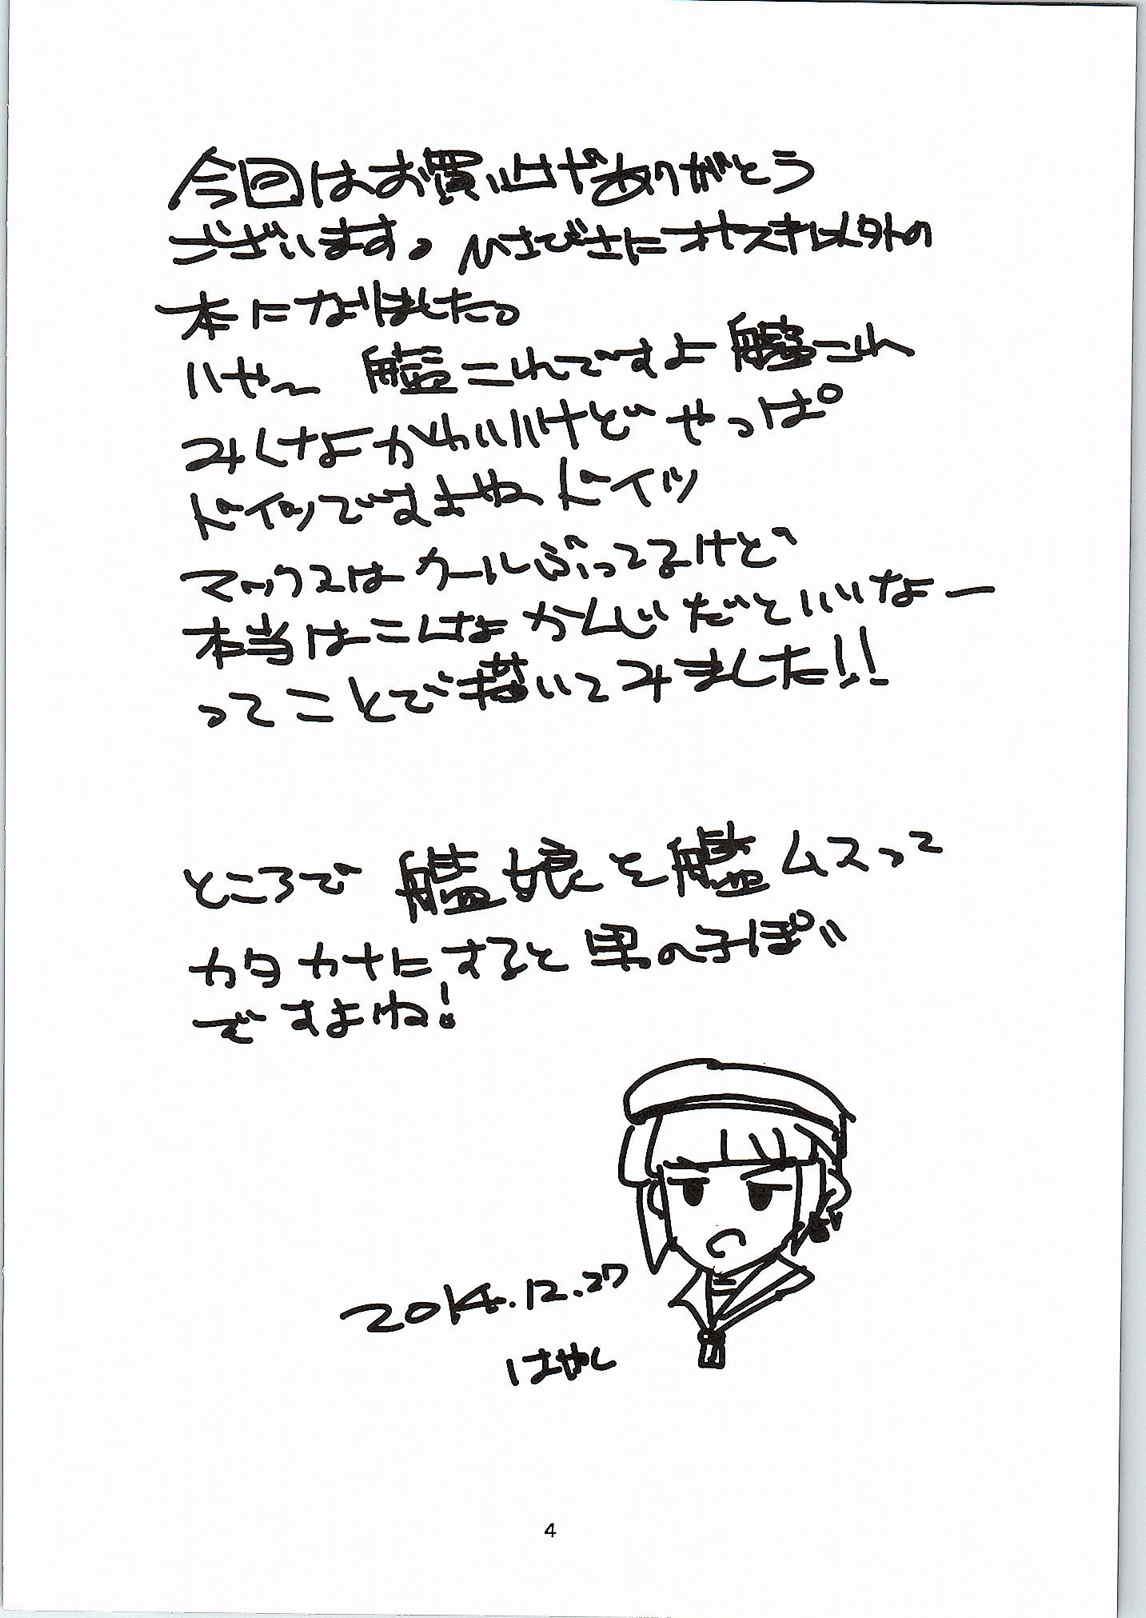 今回はお買い上げありがとう
ございます。ひさびさにオヤスキ以外の
本になりました。
いや〜 艦これですよ艦これ
みんなかわいいけどやっぱ
ドイツですよねドイツ
マックスはクールぶってるけど
本当はこんなかんじだといいなー
ってことで描いてみました!!
ところで 艦娘を艦ムスって
カタカナにすると男の子ぽい
ですよね!
2014.12.27
はやし
4